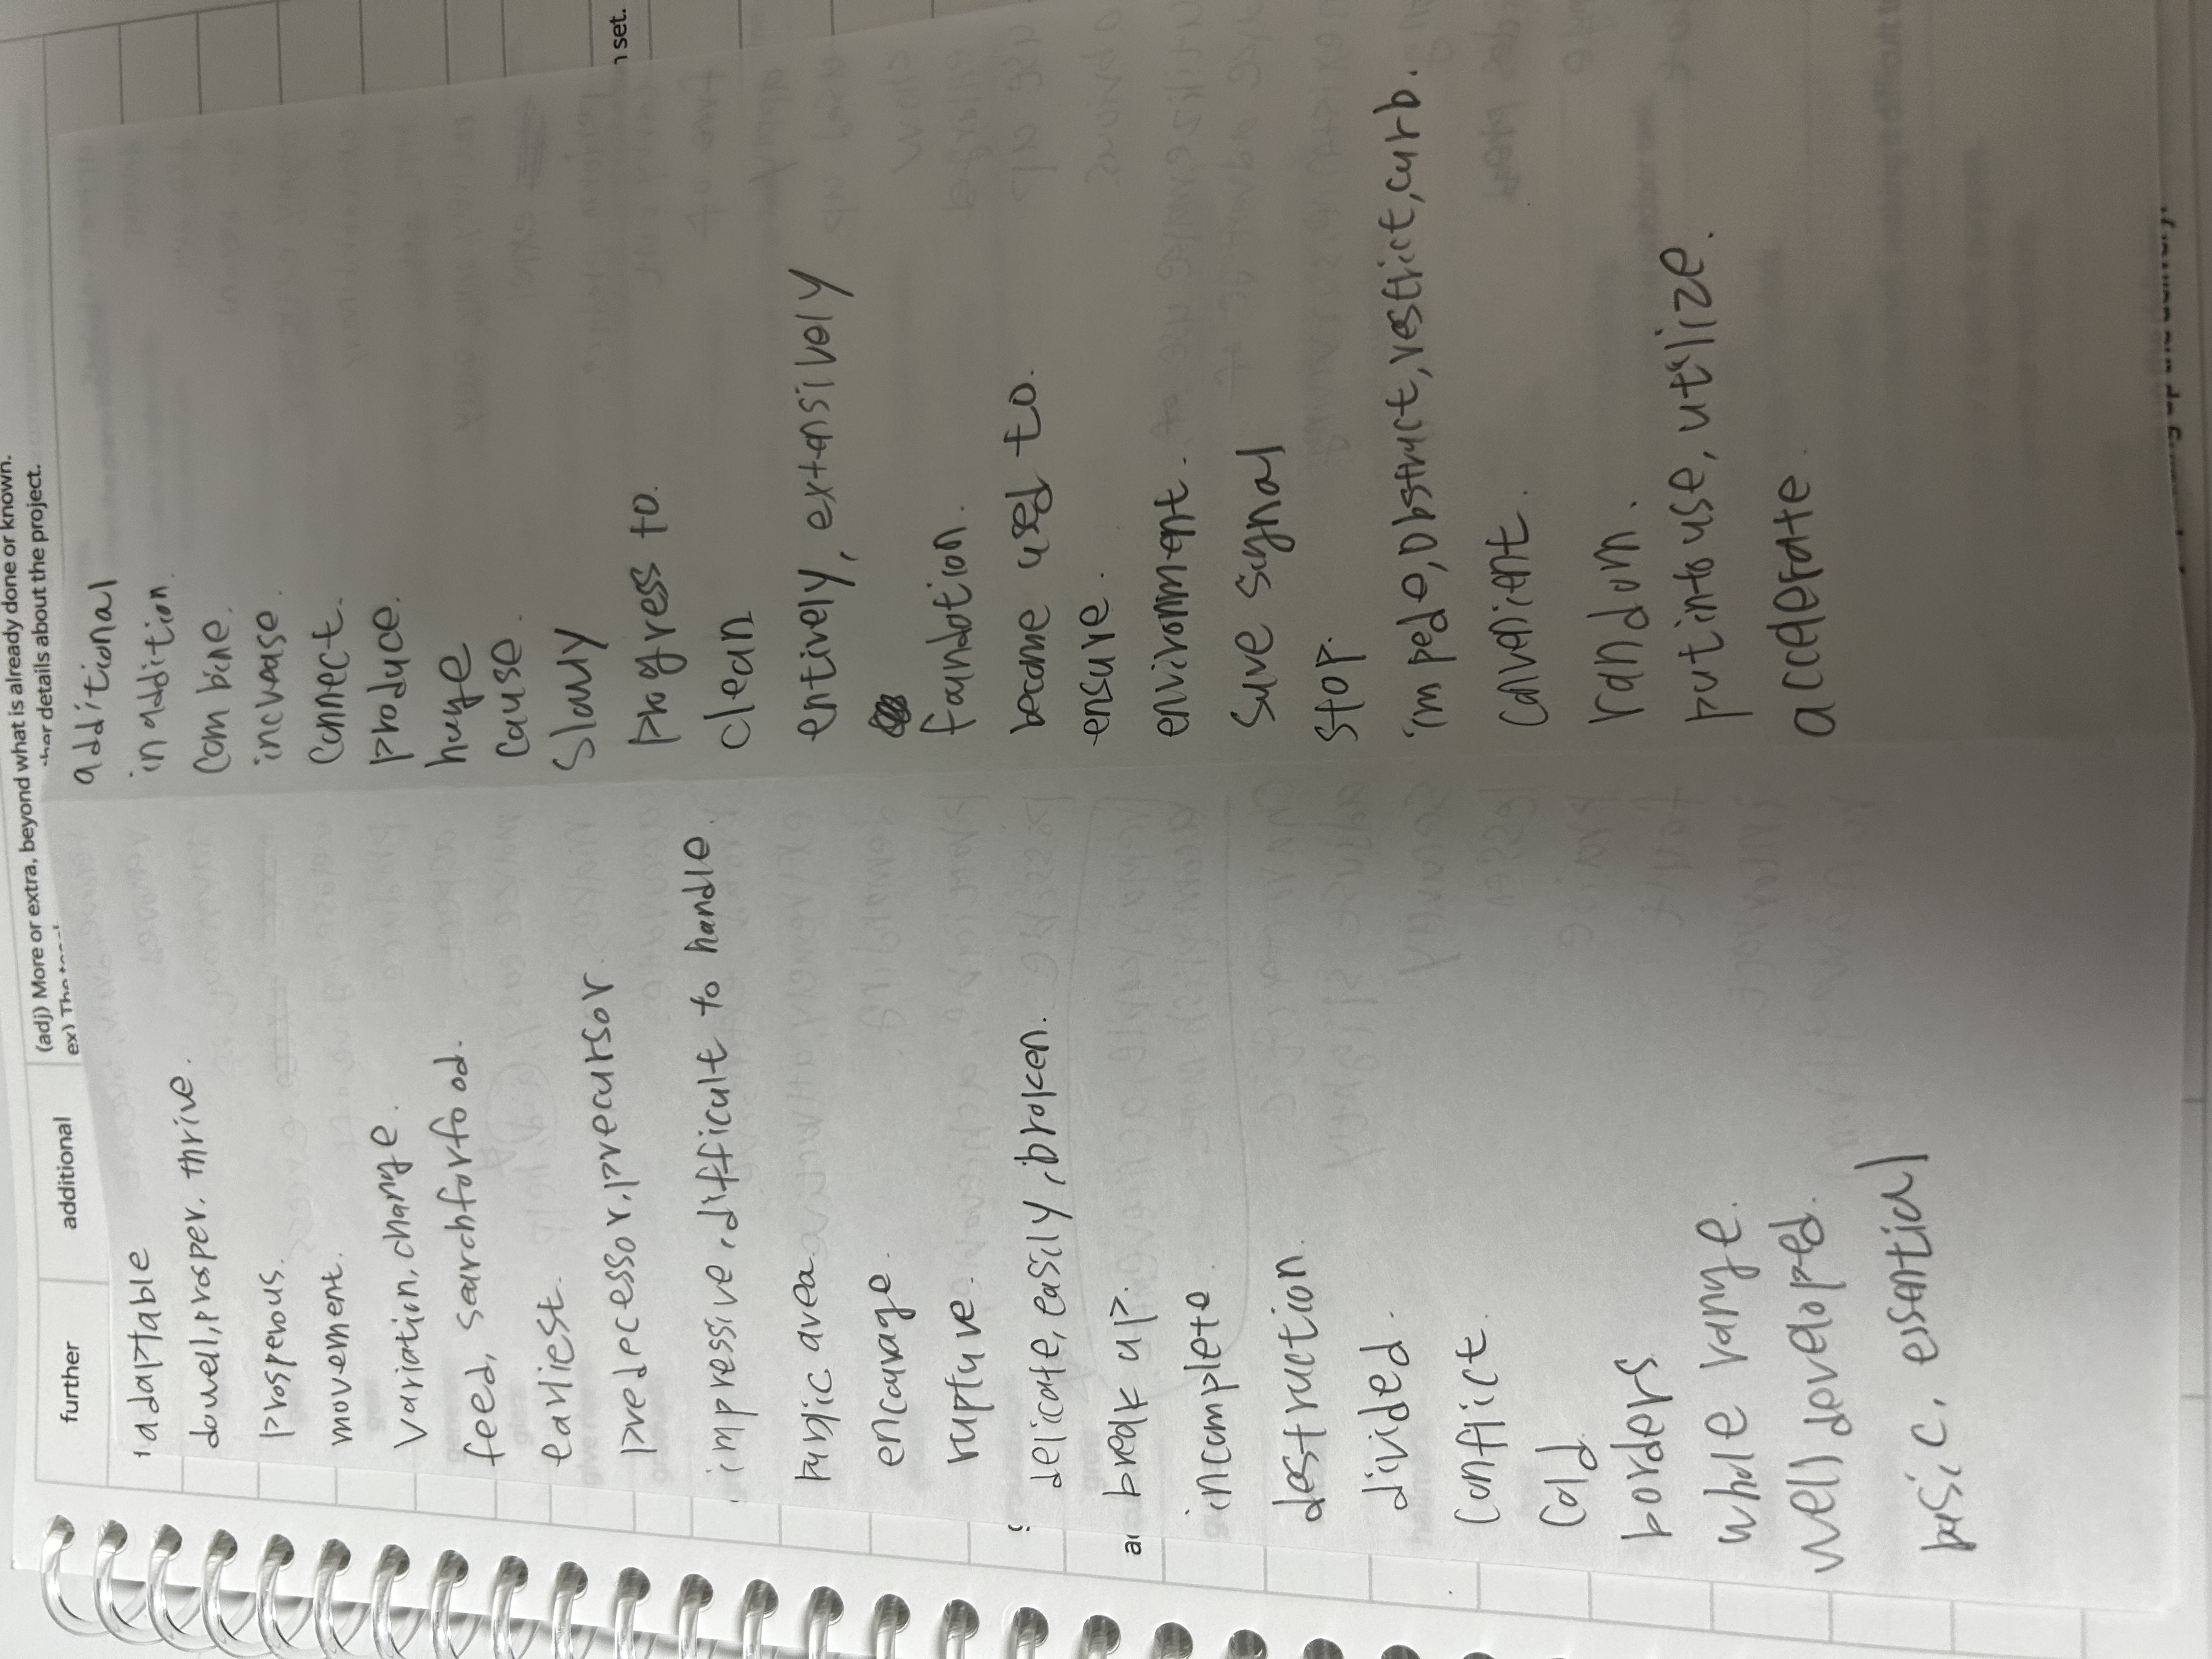 (adj) More or extra, beyond what is already done or known.
further
additional
her details about the project.
adaptable
dowell, prosper, thrive.
prosperous.
movement.
variation, change.
feed, searchforfood.
earliest.
predecessor, precursor
impressive, difficult to handle
public area.
encourage
rupture.
delicate, easily, broken.
break up.
incomplete.
destruction.
divided.
conflict.
cold
borders
whole range.
well developed.
basic, essential
additional
in addition.
combine.
increase.
connect.
produce.
huge
cause.
slowly
progress to.
clean
entirely, extensively
foundation.
become used to.
ensure.
environment.
signal
stop.
impede, obstruct, restrict, curb.
random.
put into use, utilize.
accelerate.
set.